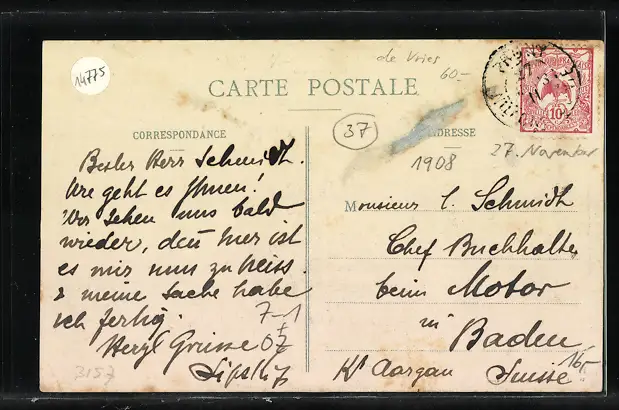 14775
de Vries
60.-
CARTE POSTALE
37
CORRESPONDANCE
ADRESSE
1908
27. November
10
Bester Herr Schmidt.
Wie geht es Ihnen!
Wir sehen uns bald
wieder, den hier ist
es mir nun zu heiss.
& meine Sache habe
ich fertig.
Herzl Grüsse
7-1
07
3157
Monsieur C. Schmidt
Chef Buchhalter
beim Motor
in Baden
Kt Aargau Suisse
16.-